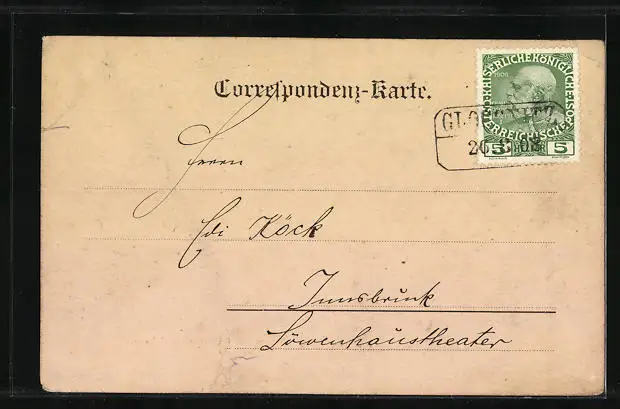 Correspondenz-Karte.
1908
KAISERLICHE KÖNIGLICHE ÖSTERREICHISCHE POST
5 5
Herrn
Edi Köck
Innsbruck
Löwenhaustheater